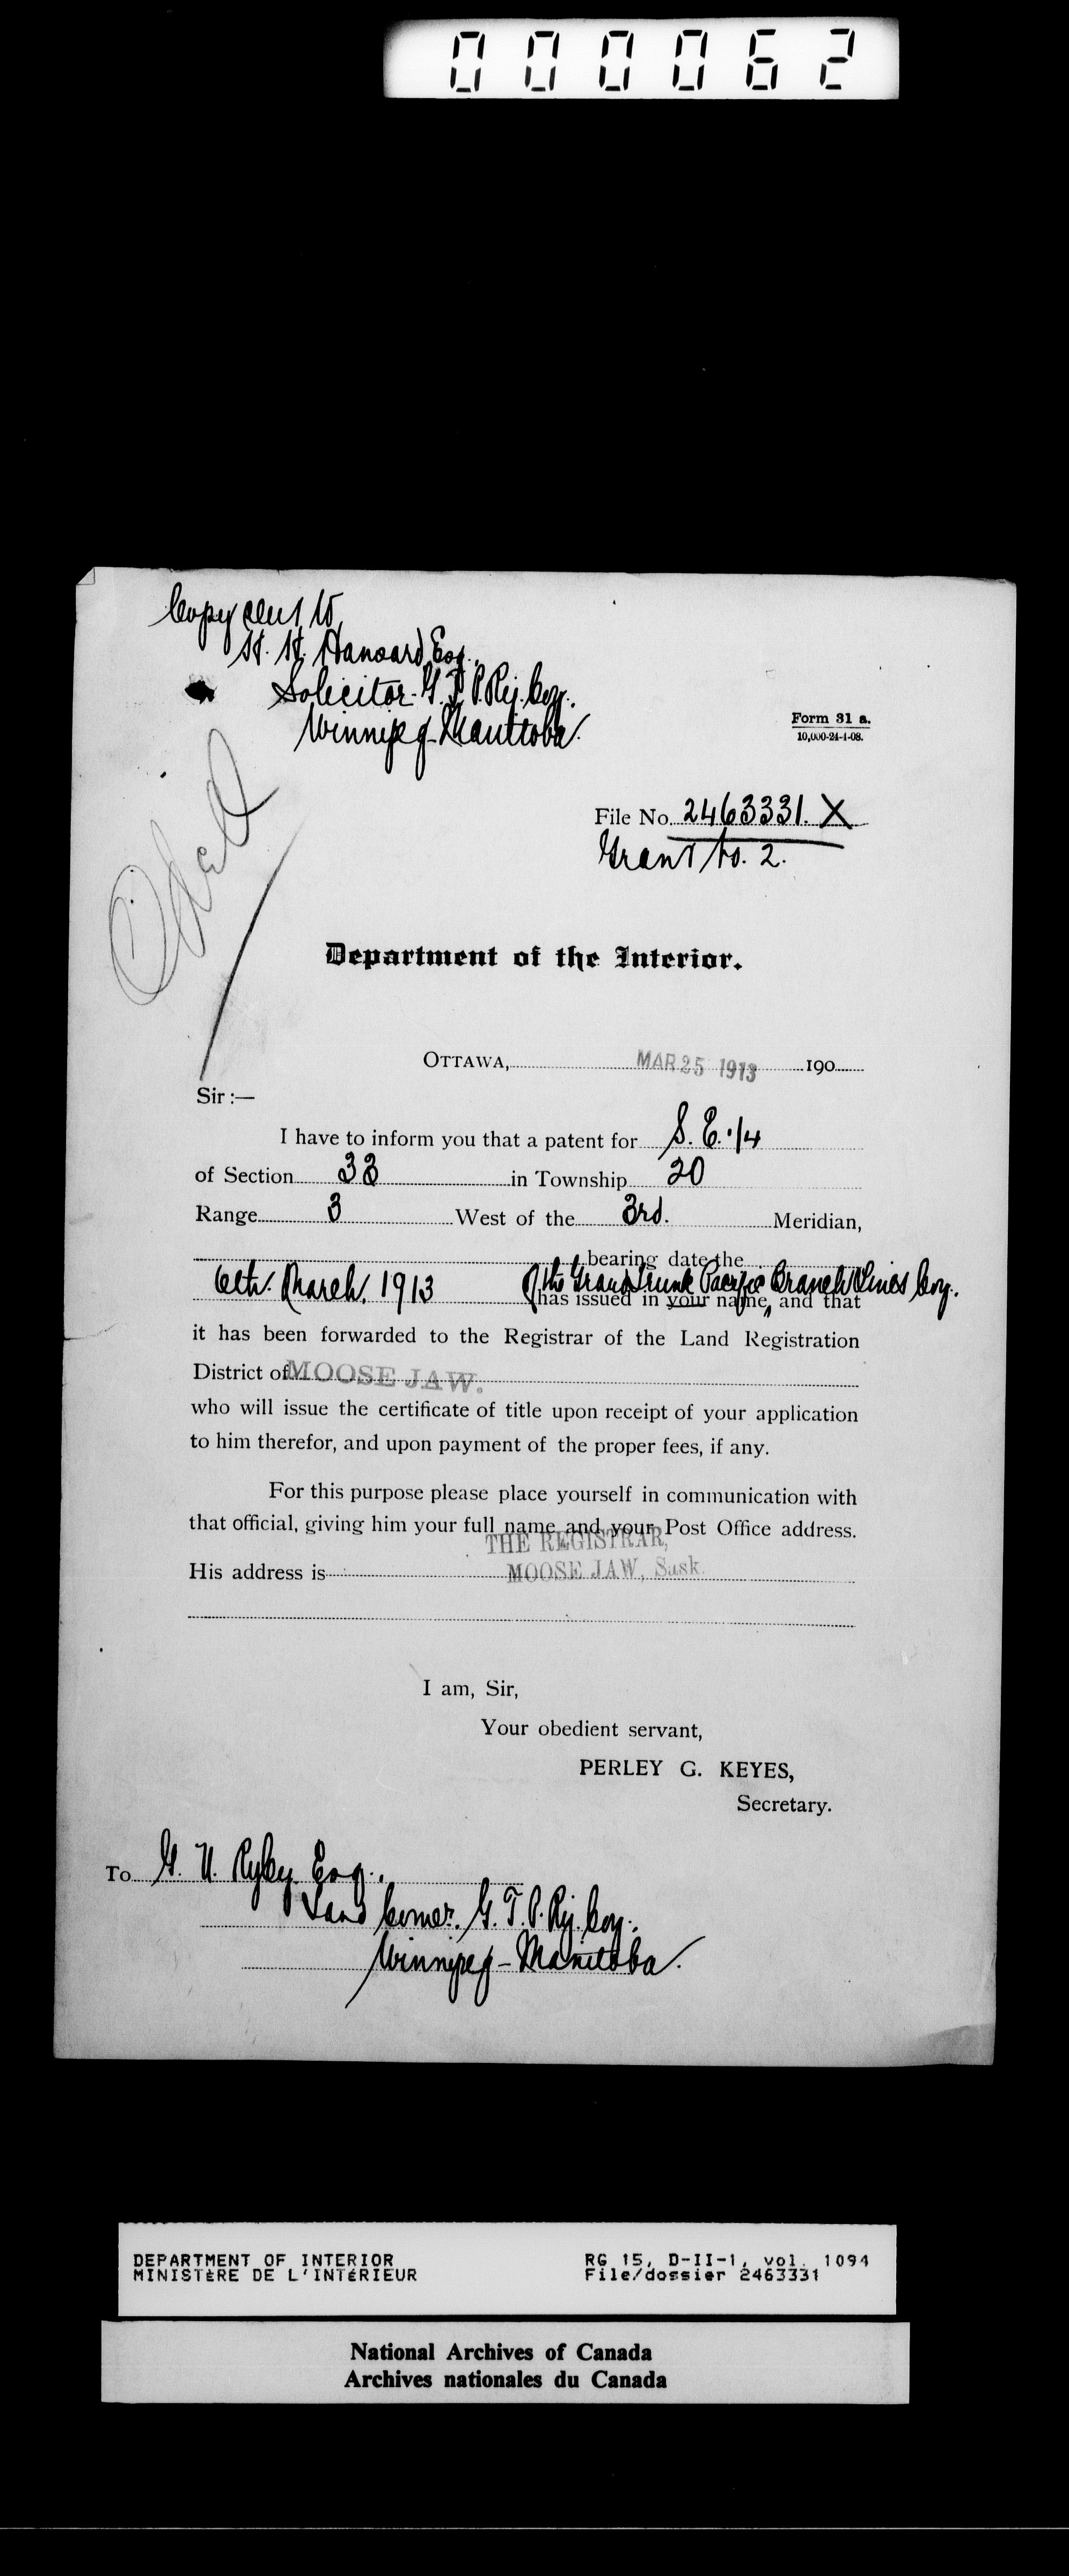 000062
Copy sent to
H. H. Hansard, Esq.,
Solicitor G. T. P. Ry. Coy.
Winnipeg - Manitoba.
Form 31 a.
10,000-24-4-08.
File No. 2463331. X
Grant No. 2.
Department of the Interior.
OTTAWA, MAR 25 1913 190
Sir :—
I have to inform you that a patent for S. E. 1/4
of Section 33 in Township 20
Range 3 West of the 3rd. Meridian,
bearing date the
6th. March, 1913 of the Grand Trunk Pacific Branch Lines Coy.
has issued in your name, and that
it has been forwarded to the Registrar of the Land Registration
District of MOOSE JAW.
who will issue the certificate of title upon receipt of your application
to him therefor, and upon payment of the proper fees, if any.
For this purpose please place yourself in communication with
that official, giving him your full name and your Post Office address.
THE REGISTRAR,
His address is MOOSE JAW, Sask.
I am, Sir,
Your obedient servant,
PERLEY G. KEYES,
Secretary.
To G. U. Ryley Esq.,
Land Comer. G. T. P. Ry. Coy.,
Winnipeg - Manitoba.
DEPARTMENT OF INTERIOR
MINISTÈRE DE L'INTÉRIEUR
RG 15, D-II-1, vol. 1094
File/dossier 2463331
National Archives of Canada
Archives nationales du Canada